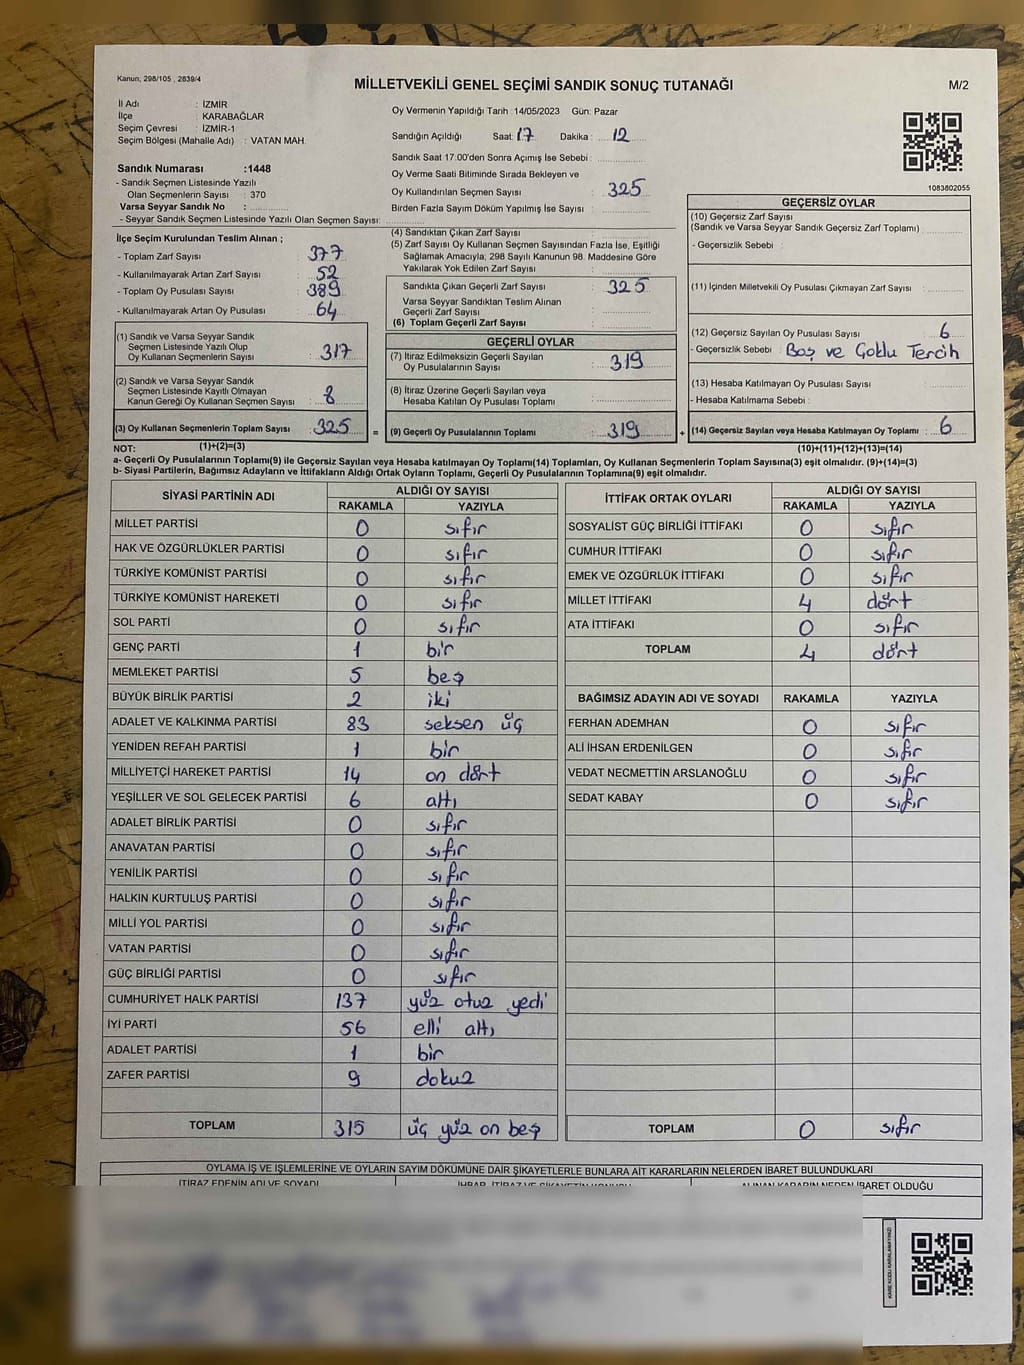 Kanun; 298/105 , 2839/4
MİLLETVEKİLİ GENEL SEÇİMİ SANDIK SONUÇ TUTANAĞI
M/2
İl Adı : İZMİR
İlçe : KARABAĞLAR
Seçim Çevresi : İZMİR-1
Seçim Bölgesi (Mahalle Adı) : VATAN MAH.
Sandık Numarası :1448
- Sandık Seçmen Listesinde Yazılı
Olan Seçmenlerin Sayısı : 370
Varsa Seyyar Sandık No :
- Seyyar Sandık Seçmen Listesinde Yazılı Olan Seçmen Sayısı:
Oy Vermenin Yapıldığı Tarih :14/05/2023 Gün: Pazar
Sandığın Açıldığı Saat: 17 Dakika : 12
Sandık Saat 17:00'den Sonra Açımış İse Sebebi :
Oy Verme Saati Bitiminde Sırada Bekleyen ve
Oy Kullandırılan Seçmen Sayısı : 325
Birden Fazla Sayım Döküm Yapılmış İse Sayısı :
1083802055
İlçe Seçim Kurulundan Teslim Alınan ;
- Toplam Zarf Sayısı : 377
- Kullanılmayarak Artan Zarf Sayısı : 52
- Toplam Oy Pusulası Sayısı : 389
- Kullanılmayarak Artan Oy Pusulası : 64
(1) Sandık ve Varsa Seyyar Sandık
Seçmen Listesinde Yazılı Olup
Oy Kullanan Seçmenlerin Sayısı : 317
(2) Sandık ve Varsa Seyyar Sandık
Seçmen Listesinde Kayıtlı Olmayan
Kanun Gereği Oy Kullanan Seçmen Sayısı : 8
(3) Oy Kullanan Seçmenlerin Toplam Sayısı : 325 =
(1)+(2)=(3)
(4) Sandıktan Çıkan Zarf Sayısı :
(5) Zarf Sayısı Oy Kullanan Seçmen Sayısından Fazla İse, Eşitliği
Sağlamak Amacıyla; 298 Sayılı Kanunun 98. Maddesine Göre
Yakılarak Yok Edilen Zarf Sayısı :
Sandıkta Çıkan Geçerli Zarf Sayısı : 325
Varsa Seyyar Sandıktan Teslim Alınan
Geçerli Zarf Sayısı :
(6) Toplam Geçerli Zarf Sayısı :
GEÇERLİ OYLAR
(7) İtiraz Edilmeksizin Geçerli Sayılan
Oy Pusulalarının Sayısı : 319
(8) İtiraz Üzerine Geçerli Sayılan veya
Hesaba Katılan Oy Pusulası Toplamı :
(9) Geçerli Oy Pusulalarının Toplamı : 319 +
GEÇERSİZ OYLAR
(10) Geçersiz Zarf Sayısı
(Sandık ve Varsa Seyyar Sandık Geçersiz Zarf Toplamı) :
- Geçersizlik Sebebi :
(11) İçinden Milletvekili Oy Pusulası Çıkmayan Zarf Sayısı :
(12) Geçersiz Sayılan Oy Pusulası Sayısı : 6
- Geçersizlik Sebebi : Boş ve Çoklu Tercih
(13) Hesaba Katılmayan Oy Pusulası Sayısı :
- Hesaba Katılmama Sebebi :
(14) Geçersiz Sayılan veya Hesaba Katılmayan Oy Toplamı : 6
(10)+(11)+(12)+(13)=(14)
NOT:
a- Geçerli Oy Pusulalarının Toplamı(9) ile Geçersiz Sayılan veya Hesaba katılmayan Oy Toplamı(14) Toplamları, Oy Kullanan Seçmenlerin Toplam Sayısına(3) eşit olmalıdır. (9)+(14)=(3)
b- Siyasi Partilerin, Bağımsız Adayların ve İttifakların Aldığı Oy Oyların Toplamı, Geçerli Oy Pusulalarının Toplamına(9) eşit olmalıdır.
SİYASİ PARTİNİN ADI ALDIĞI OY SAYISI
RAKAMLA YAZIYLA
MİLLET PARTİSİ 0 sıfır
HAK VE ÖZGÜRLÜKLER PARTİSİ 0 sıfır
TÜRKİYE KOMÜNİST PARTİSİ 0 sıfır
TÜRKİYE KOMÜNİST HAREKETİ 0 sıfır
SOL PARTİ 0 sıfır
GENÇ PARTİ 1 bir
MEMLEKET PARTİSİ 5 beş
BÜYÜK BİRLİK PARTİSİ 2 iki
ADALET VE KALKINMA PARTİSİ 83 seksen üç
YENİDEN REFAH PARTİSİ 1 bir
MİLLİYETÇİ HAREKET PARTİSİ 14 on dört
YEŞİLLER VE SOL GELECEK PARTİSİ 6 altı
ADALET BİRLİK PARTİSİ 0 sıfır
ANAVATAN PARTİSİ 0 sıfır
YENİLİK PARTİSİ 0 sıfır
HALKIN KURTULUŞ PARTİSİ 0 sıfır
MİLLİ YOL PARTİSİ 0 sıfır
VATAN PARTİSİ 0 sıfır
GÜÇ BİRLİĞİ PARTİSİ 0 sıfır
CUMHURİYET HALK PARTİSİ 137 yüz otuz yedi
İYİ PARTİ 56 elli altı
ADALET PARTİSİ 1 bir
ZAFER PARTİSİ 9 dokuz
TOPLAM 315 üç yüz on beş
İTTİFAK ORTAK OYLARI ALDIĞI OY SAYISI
RAKAMLA YAZIYLA
SOSYALİST GÜÇ BİRLİĞİ İTTİFAKI 0 sıfır
CUMHUR İTTİFAKI 0 sıfır
EMEK VE ÖZGÜRLÜK İTTİFAKI 0 sıfır
MİLLET İTTİFAKI 4 dört
ATA İTTİFAKI 0 sıfır
TOPLAM 4 dört
BAĞIMSIZ ADAYIN ADI VE SOYADI RAKAMLA YAZIYLA
FERHAN ADEMHAN 0 sıfır
ALİ İHSAN ERDENİLGEN 0 sıfır
VEDAT NECMETTİN ARSLANOĞLU 0 sıfır
SEDAT KABAY 0 sıfır
TOPLAM 0 sıfır
OYLAMA İŞ VE İŞLEMLERİNE VE OYLARIN SAYIM DÖKÜMÜNE DAİR ŞİKAYETLERLE BUNLARA AİT KARARLARIN NELERDEN İBARET BULUNDUKLARI
İTİRAZ EDENİN ADI VE SOYADI İHBAR, İTİRAZ VE ŞİKAYETİN KONUSU ALINAN KARARIN NEDEN İBARET OLDUĞU